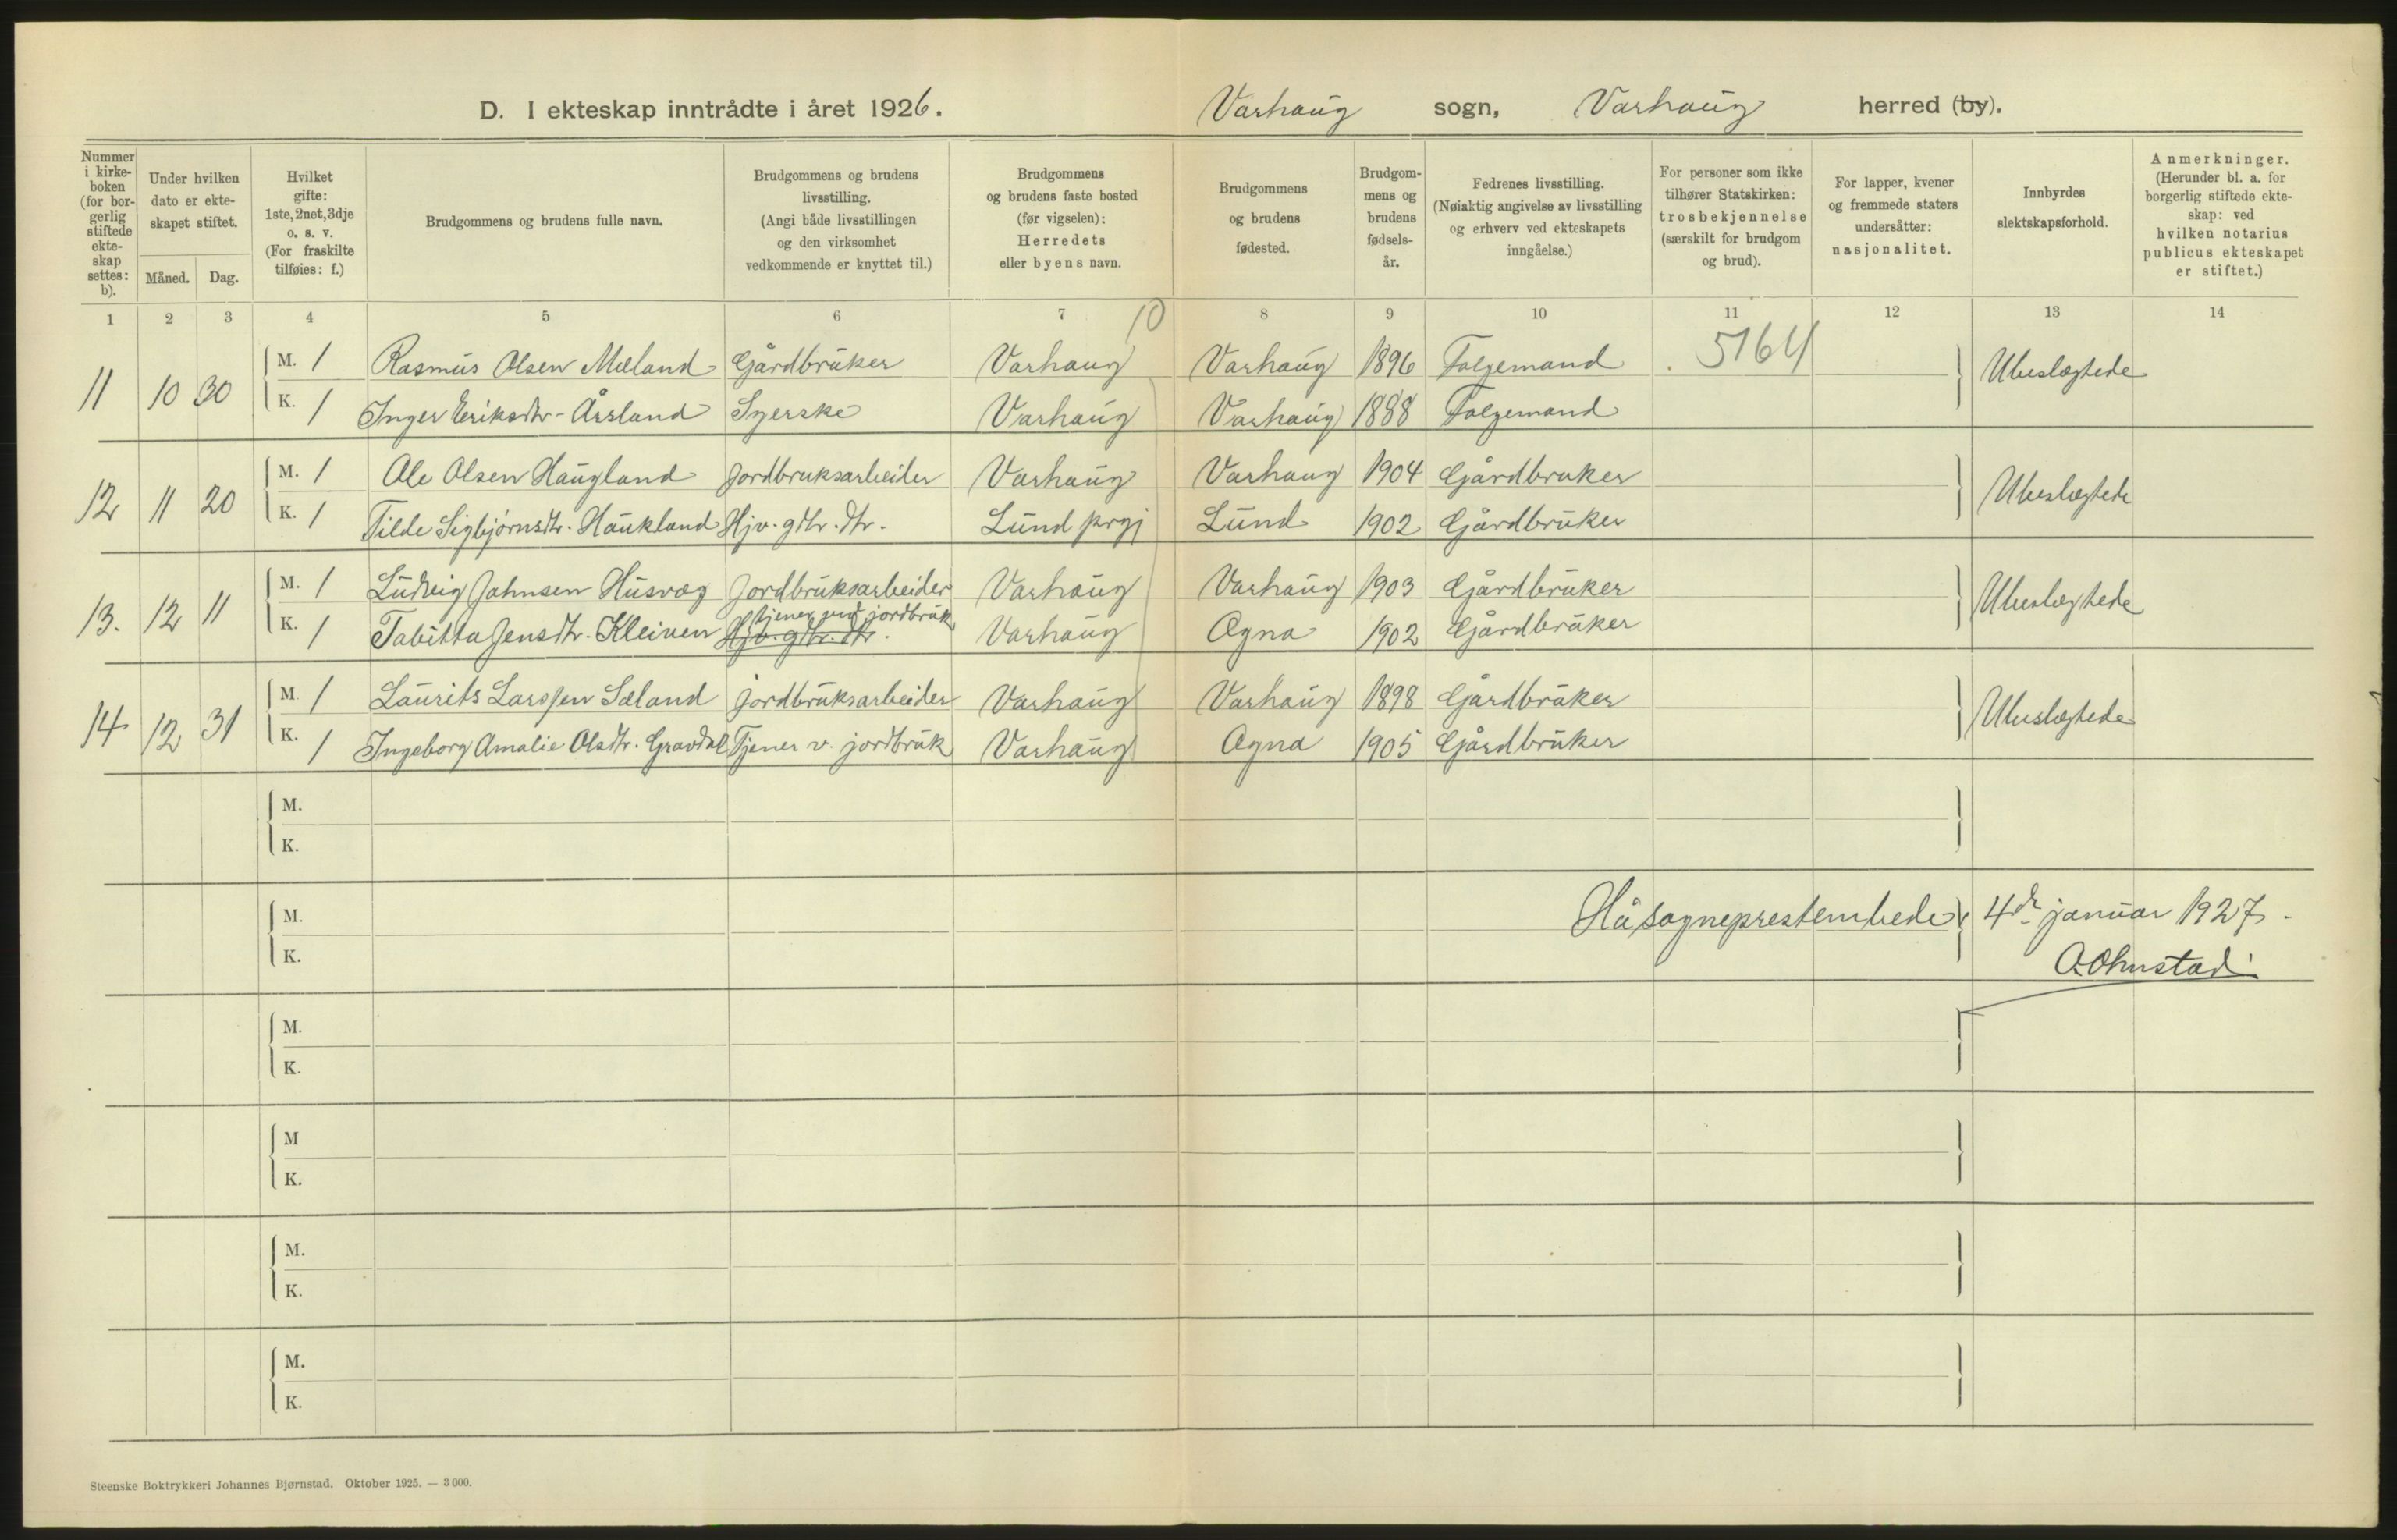 D. I ekteskap inntrådte i året 1926. Varhaug sogn, Varhaug herred (by).
Nummer i kirkeboken (for borgerlig stiftede ekteskap settes: b).
Under hvilken dato er ekteskapet stiftet.
Måned. Dag.
Hvilket gifte: 1ste, 2net, 3dje o. s. v. (For fraskilte tilføies: f.)
Brudgommens og brudens fulle navn.
Brudgommens og brudens livsstilling. (Angi både livsstillingen og den virksomhet vedkommende er knyttet til.)
Brudgommens og brudens faste bosted (før vigselen): Herredets eller byens navn.
Brudgommens og brudens fødested.
Brudgommens og brudens fødselsår.
Fedrenes livsstilling. (Nøiaktig angivelse av livsstilling og erhverv ved ekteskapets inngåelse.)
For personer som ikke tilhører Statskirken: trosbekjennelse (særskilt for brudgom og brud).
For lapper, kvener og fremmede staters undersåtter: nasjonalitet.
Innbyrdes slektskapsforhold.
Anmerkninger. (Herunder bl. a. for borgerlig stiftede ekteskap: ved hvilken notarius publicus ekteskapet er stiftet.)
1 2 3 4 5 6 7 8 9 10 11 12 13 14
10
5164
11 10 30 M. 1 Rasmus Olsen Mæland Gårdbruker Varhaug Varhaug 1896 Folgemand Ubeslægtede
K. 1 Inger Eriksdtr. Årsland Syerske Varhaug Varhaug 1888 Folgemand
12 11 20 M. 1 Ole Olsen Haugland Jordbruksarbeider Varhaug Varhaug 1904 Gårdbruker Ubeslægtede
K. 1 Tilde Sigbjørnsdtr. Haukland Hjv. gbr. dtr. Lund prgj Lund 1902 Gårdbruker
13. 12 11 M. 1 Ludvig Johnsen Husvæg Jordbruksarbeider Varhaug Varhaug 1903 Gårdbruker Ubeslægtede
K. 1 Tabitta Jensdtr. Kleiven Hjv. gbr. dtr. tjener ved jordbruk Varhaug Ogna 1902 Gårdbruker
14 12 31 M. 1 Laurits Larssen Sæland jordbruksarbeider Varhaug Varhaug 1898 Gårdbruker Ubeslægtede
K. 1 Ingeborg Amalie Olsdtr. Gravdal Tjener v. jordbruk Varhaug Ogna 1905 Gårdbruker
M.
K.
M. Hå sogneprestembede, 4de januar 1927.
K. A. Ohnstad
M.
K.
M
K.
M.
K.
M.
K.
Steenske Boktrykkeri Johannes Bjørnstad. Oktober 1925. — 3 000.